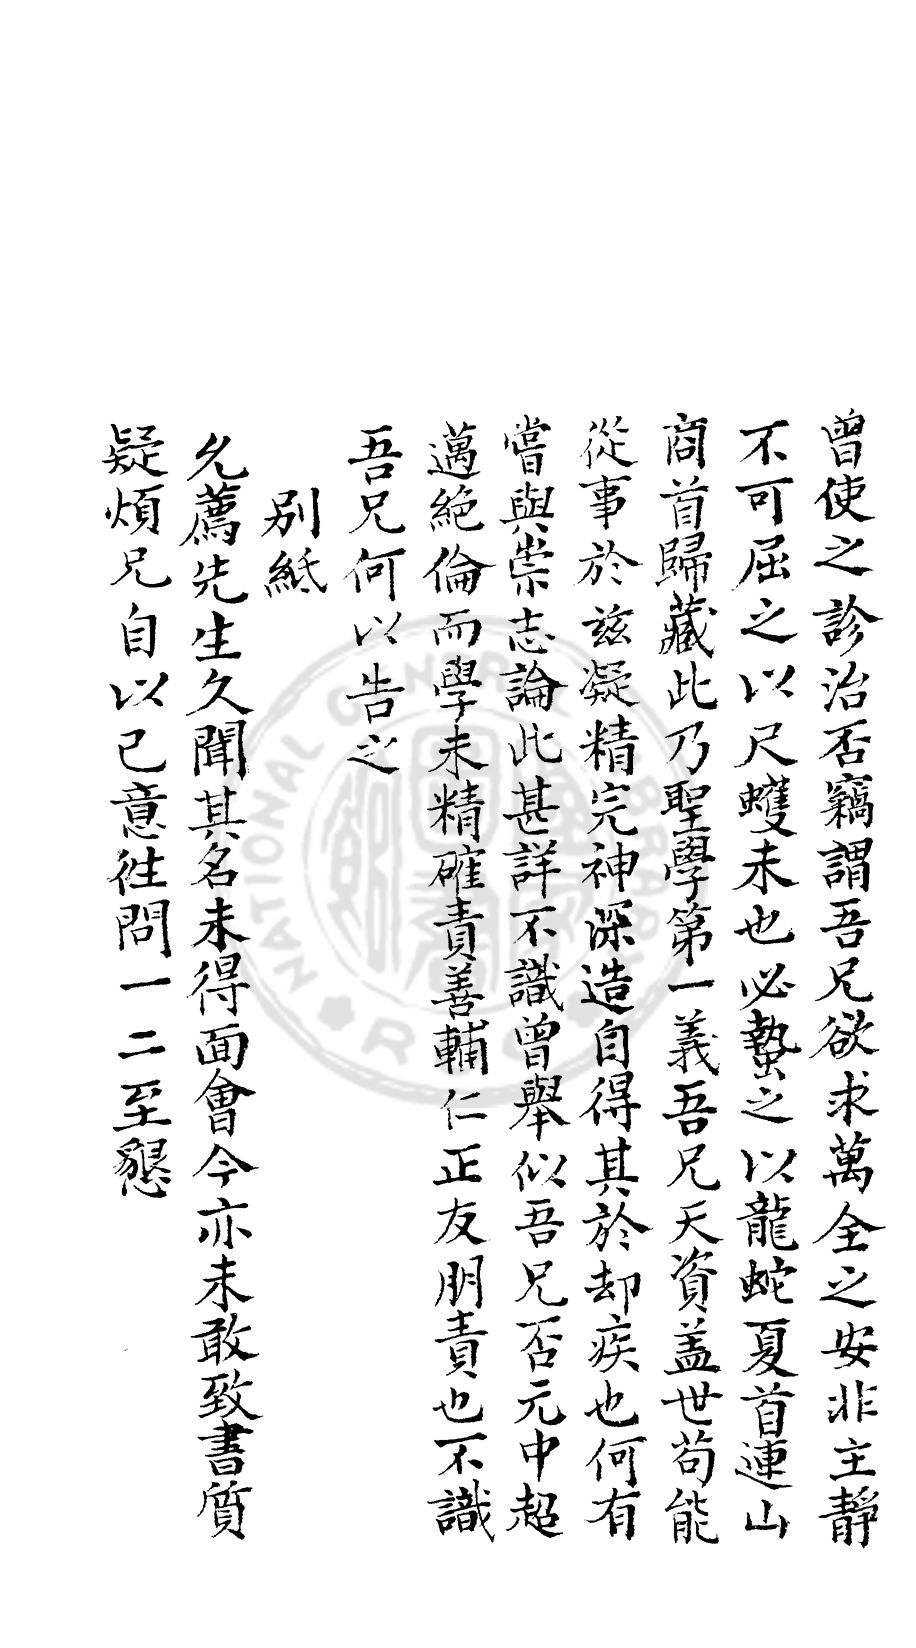 曾使之診治否竊謂吾兄欲求萬全之安非主靜
不可屈之以尺蠖未也必蟄之以龍蛇夏首連山
商首歸藏此乃聖學第一義吾兄天資盖世苟能
從事於兹凝精完神深造自得其於却疾也何有
嘗與崇志論此甚詳不識曾舉似吾兄否元中超
邁絶倫而學未精確責善輔仁正友朋責也不識
吾兄何以告之
別紙
允薦先生久聞其名未得面會今亦未敢致書質
疑煩兄自以己意徃問一二至懇
NATIONAL CENTRAL LIBRARY
R.O.C